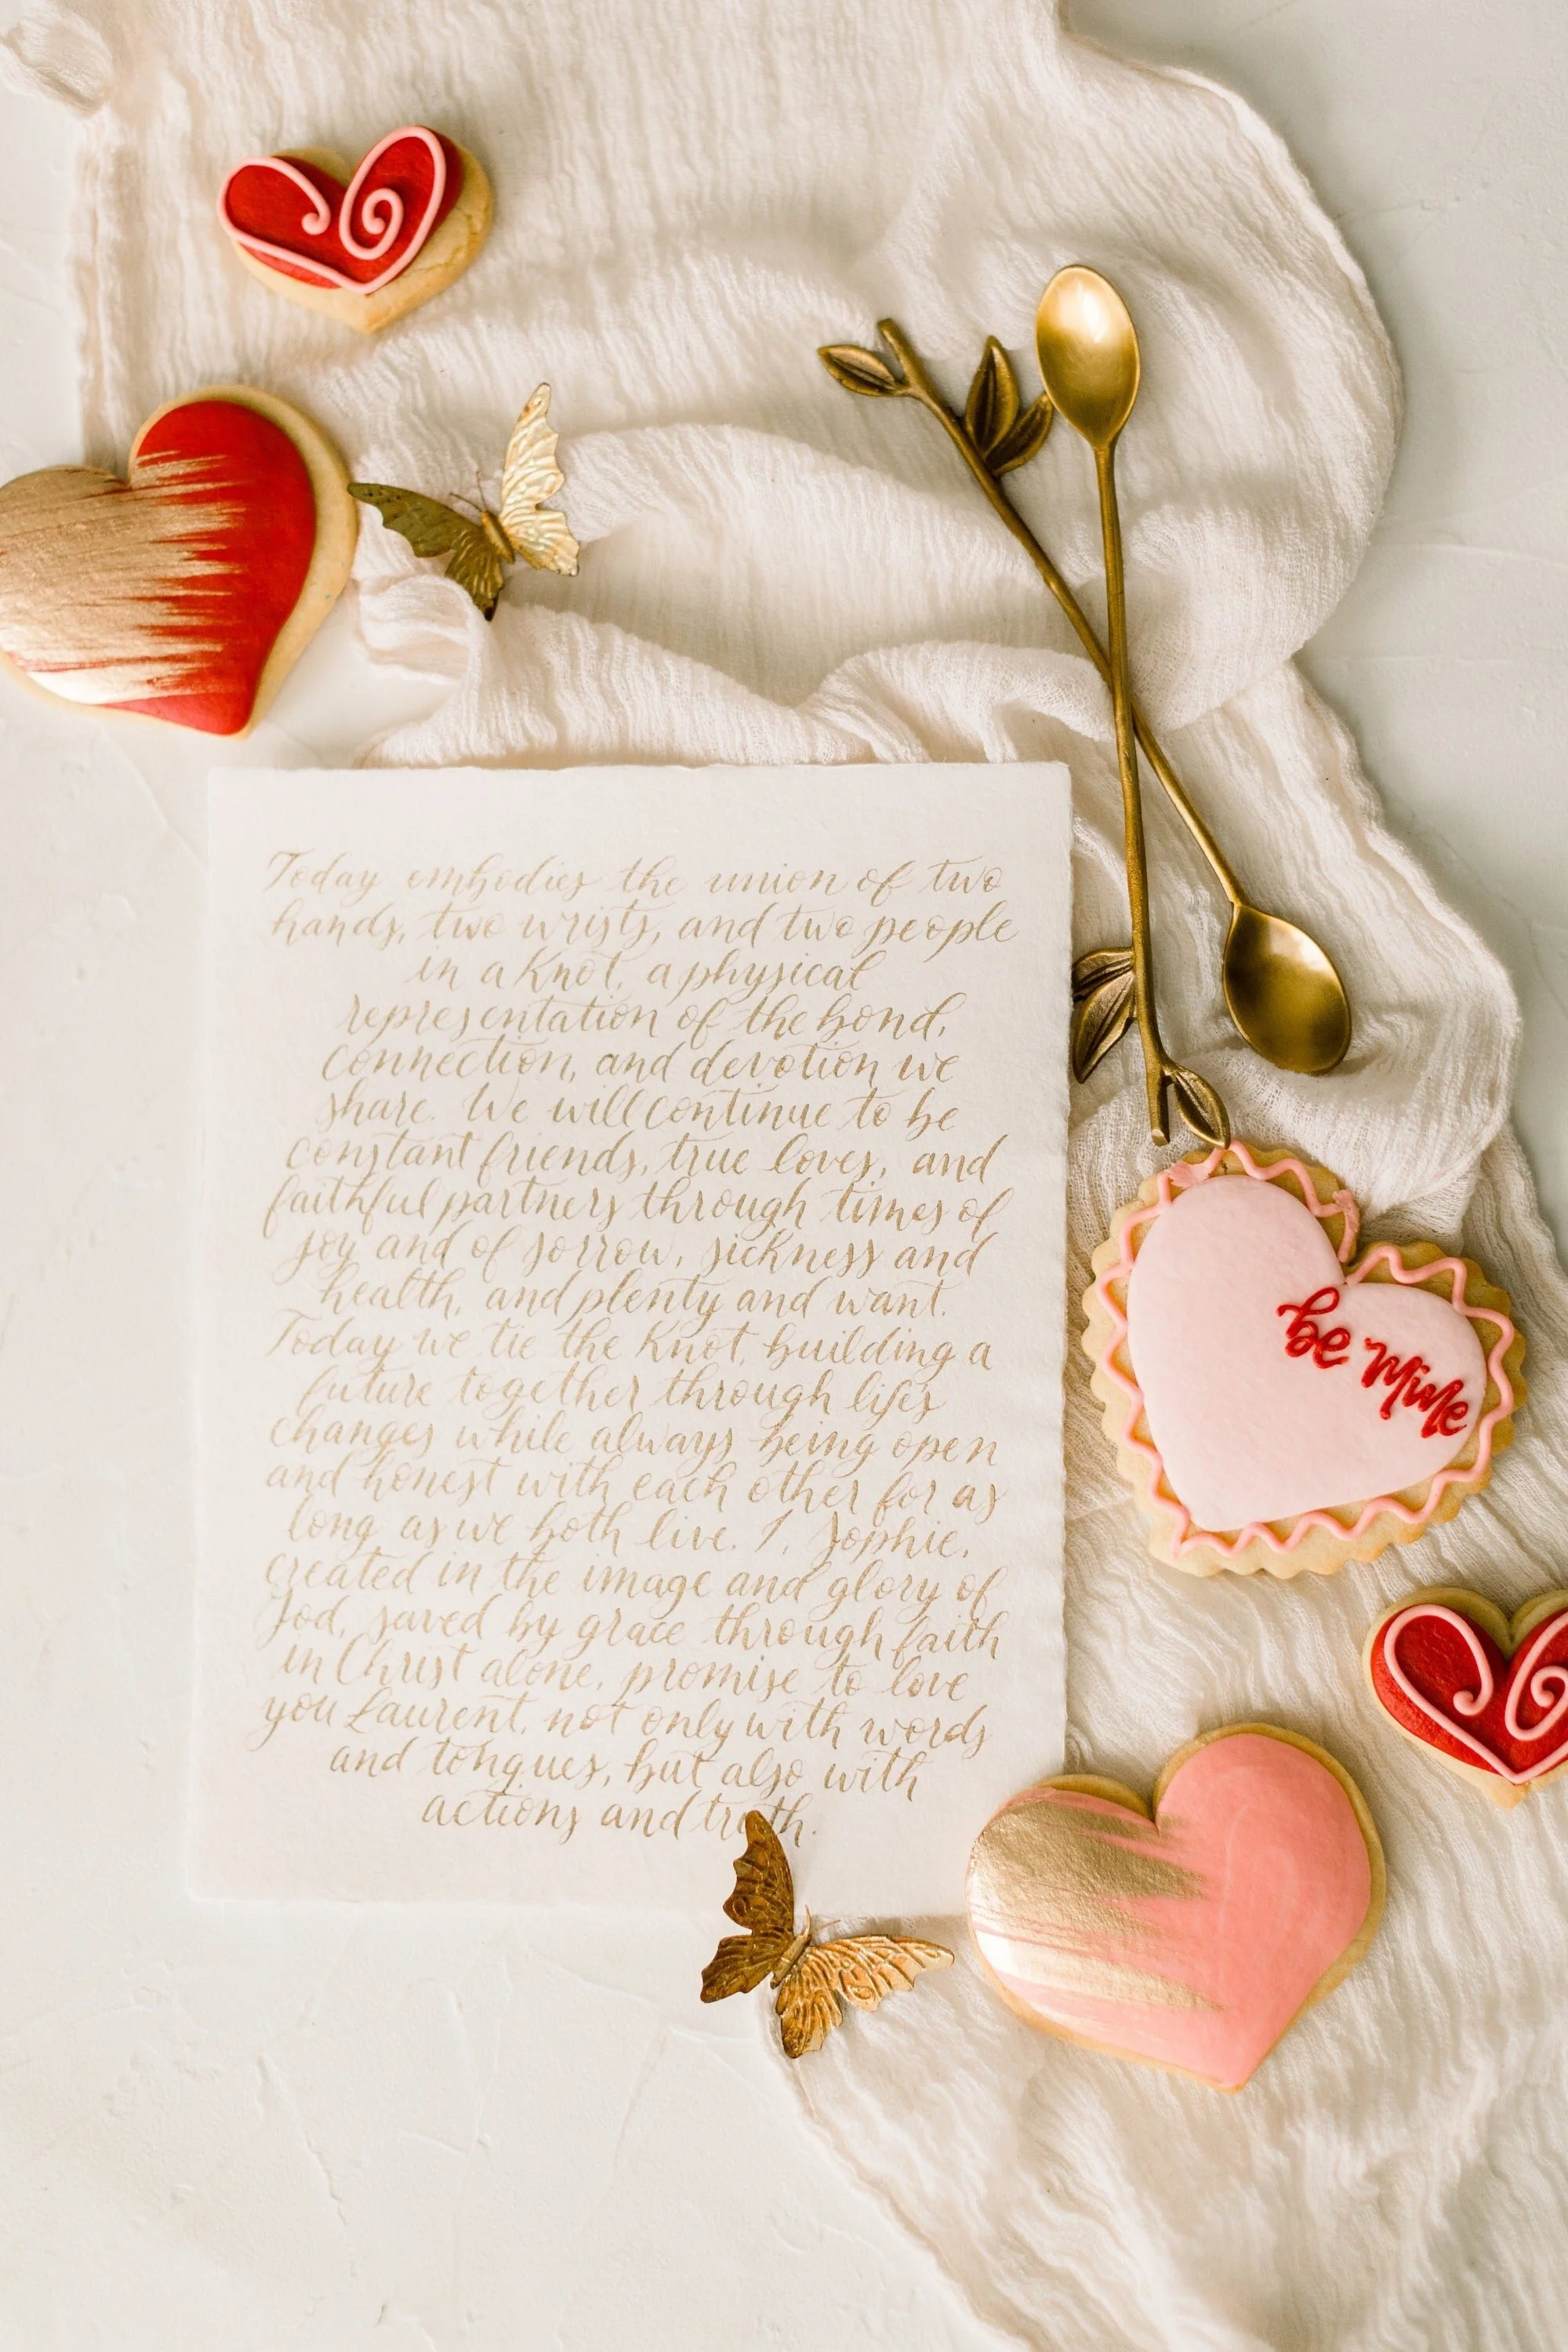 Today embodies the union of two
hands, two wrists, and two people
in a knot, a physical
representation of the bond,
connection, and devotion we
share. We will continue to be
constant friends, true loves, and
faithful partners through times of
joy and of sorrow, sickness and
health, and plenty and want.
Today we tie the knot, building a
future together through life's
changes while always being open
and honest with each other for as
long as we both live. I, Sophie,
created in the image and glory of
God, saved by grace through faith
in Christ alone, promise to love
you Laurent, not only with words
and tongues, but also with
actions and truth.
be mine